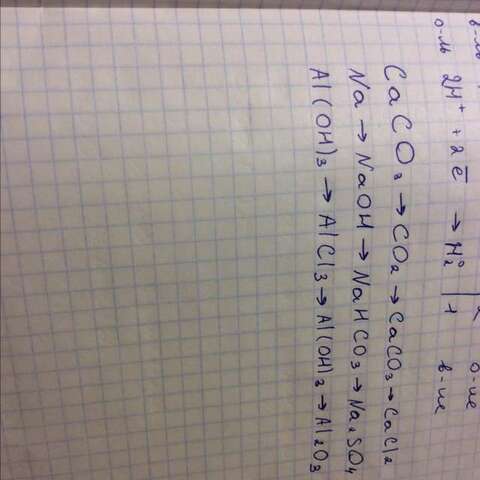 в-ль
о-ль 2H⁺ + 2ē → H₂⁰ | 1 в-ие
о-ие
CaCO₃ → CO₂ → CaCO₃ → CaCl₂
Na → NaOH → NaHCO₃ → Na₂SO₄
Al(OH)₃ → AlCl₃ → Al(OH)₃ → Al₂O₃